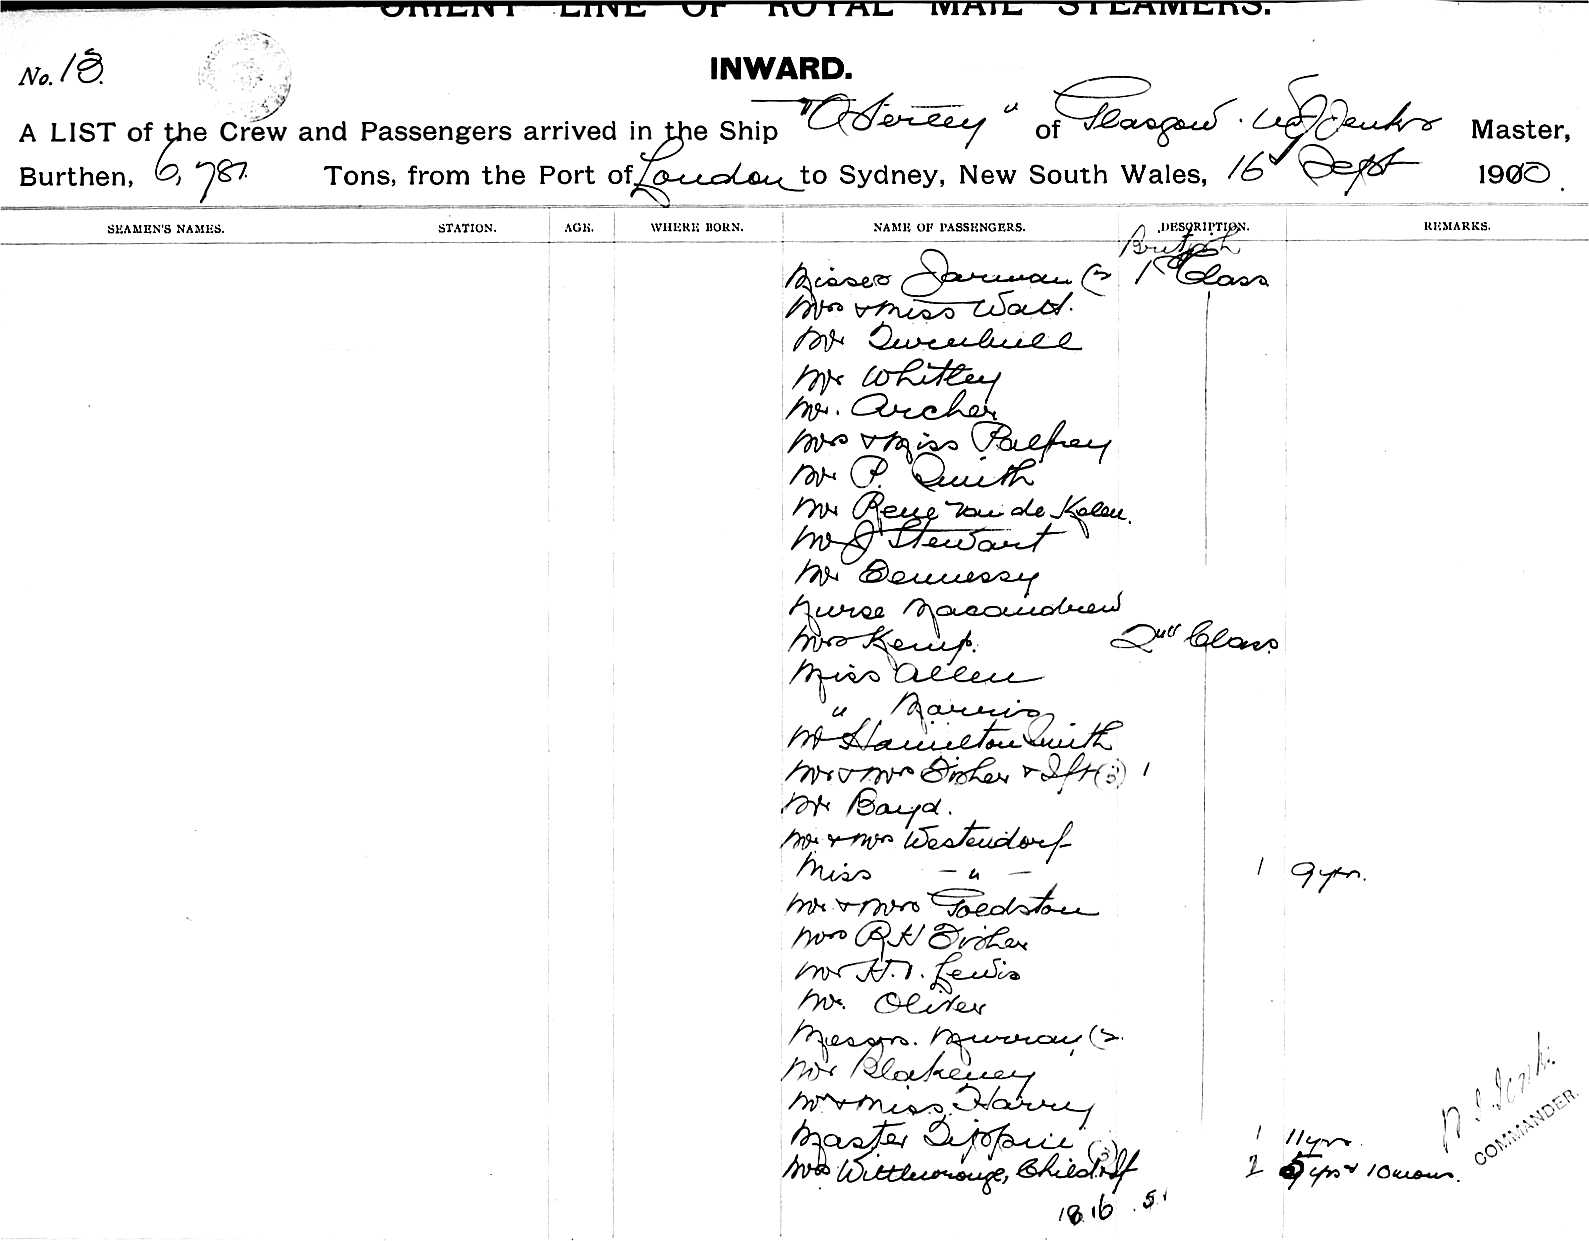 ORIENT LINE OF ROYAL MAIL STEAMERS.
No. 18.
INWARD.
A LIST of the Crew and Passengers arrived in the Ship "Osterley" of Glasgow. Jenks Master,
Burthen, 6,781. Tons, from the Port of London to Sydney, New South Wales, 16 Sept 1900.
SEAMEN'S NAMES. STATION. AGE. WHERE BORN. NAME OF PASSENGERS. DESCRIPTION. REMARKS.
British
Misses Jarman (2 1st Class
Mrs & Miss Watt.
Mr Turnbull
Mr Whitley
Mr. Archer
Mrs & Miss Palfrey
Mr P. Smith
Mr Rene Van de Kelen.
Mr J Stewart
Mr Dennessy
Nurse Macandrew
Mrs Kemp. 2nd Class
Miss Allen
" Marris
Mr Hamilton Smith
Mr & Mrs Fisher & Ift (3) 1
Mr Bayd.
Mr & Mrs Westendorf
Miss — " — 1 9 yrs.
Mr & Mrs Goldston
Mrs R H Fisher
Mr H. I. Lewis
Mr. Oliver
Messrs. Murray (2.
Mr Blakeney
Mr & Miss Harvey
Master Tippin 1 11 yrs.
Mrs Child & If (3) 2 5 yrs & 10 mons.
18.16 .5.1
COMMANDER.